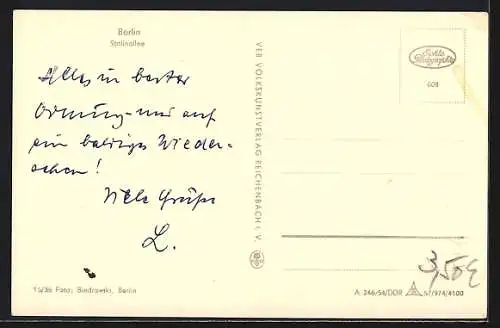 Berlin
Stalinallee
Alles in bester
Ordnung – und auf
ein baldiges Wieder-
sehen!
Viele Grüße
L.
VEB VOLKSKUNSTVERLAG REICHENBACH I. V.
Echte
Photographie
608
3,50 €
15/36 Foto: Biedrawski, Berlin
A 246/54/DDR
57/974/4100